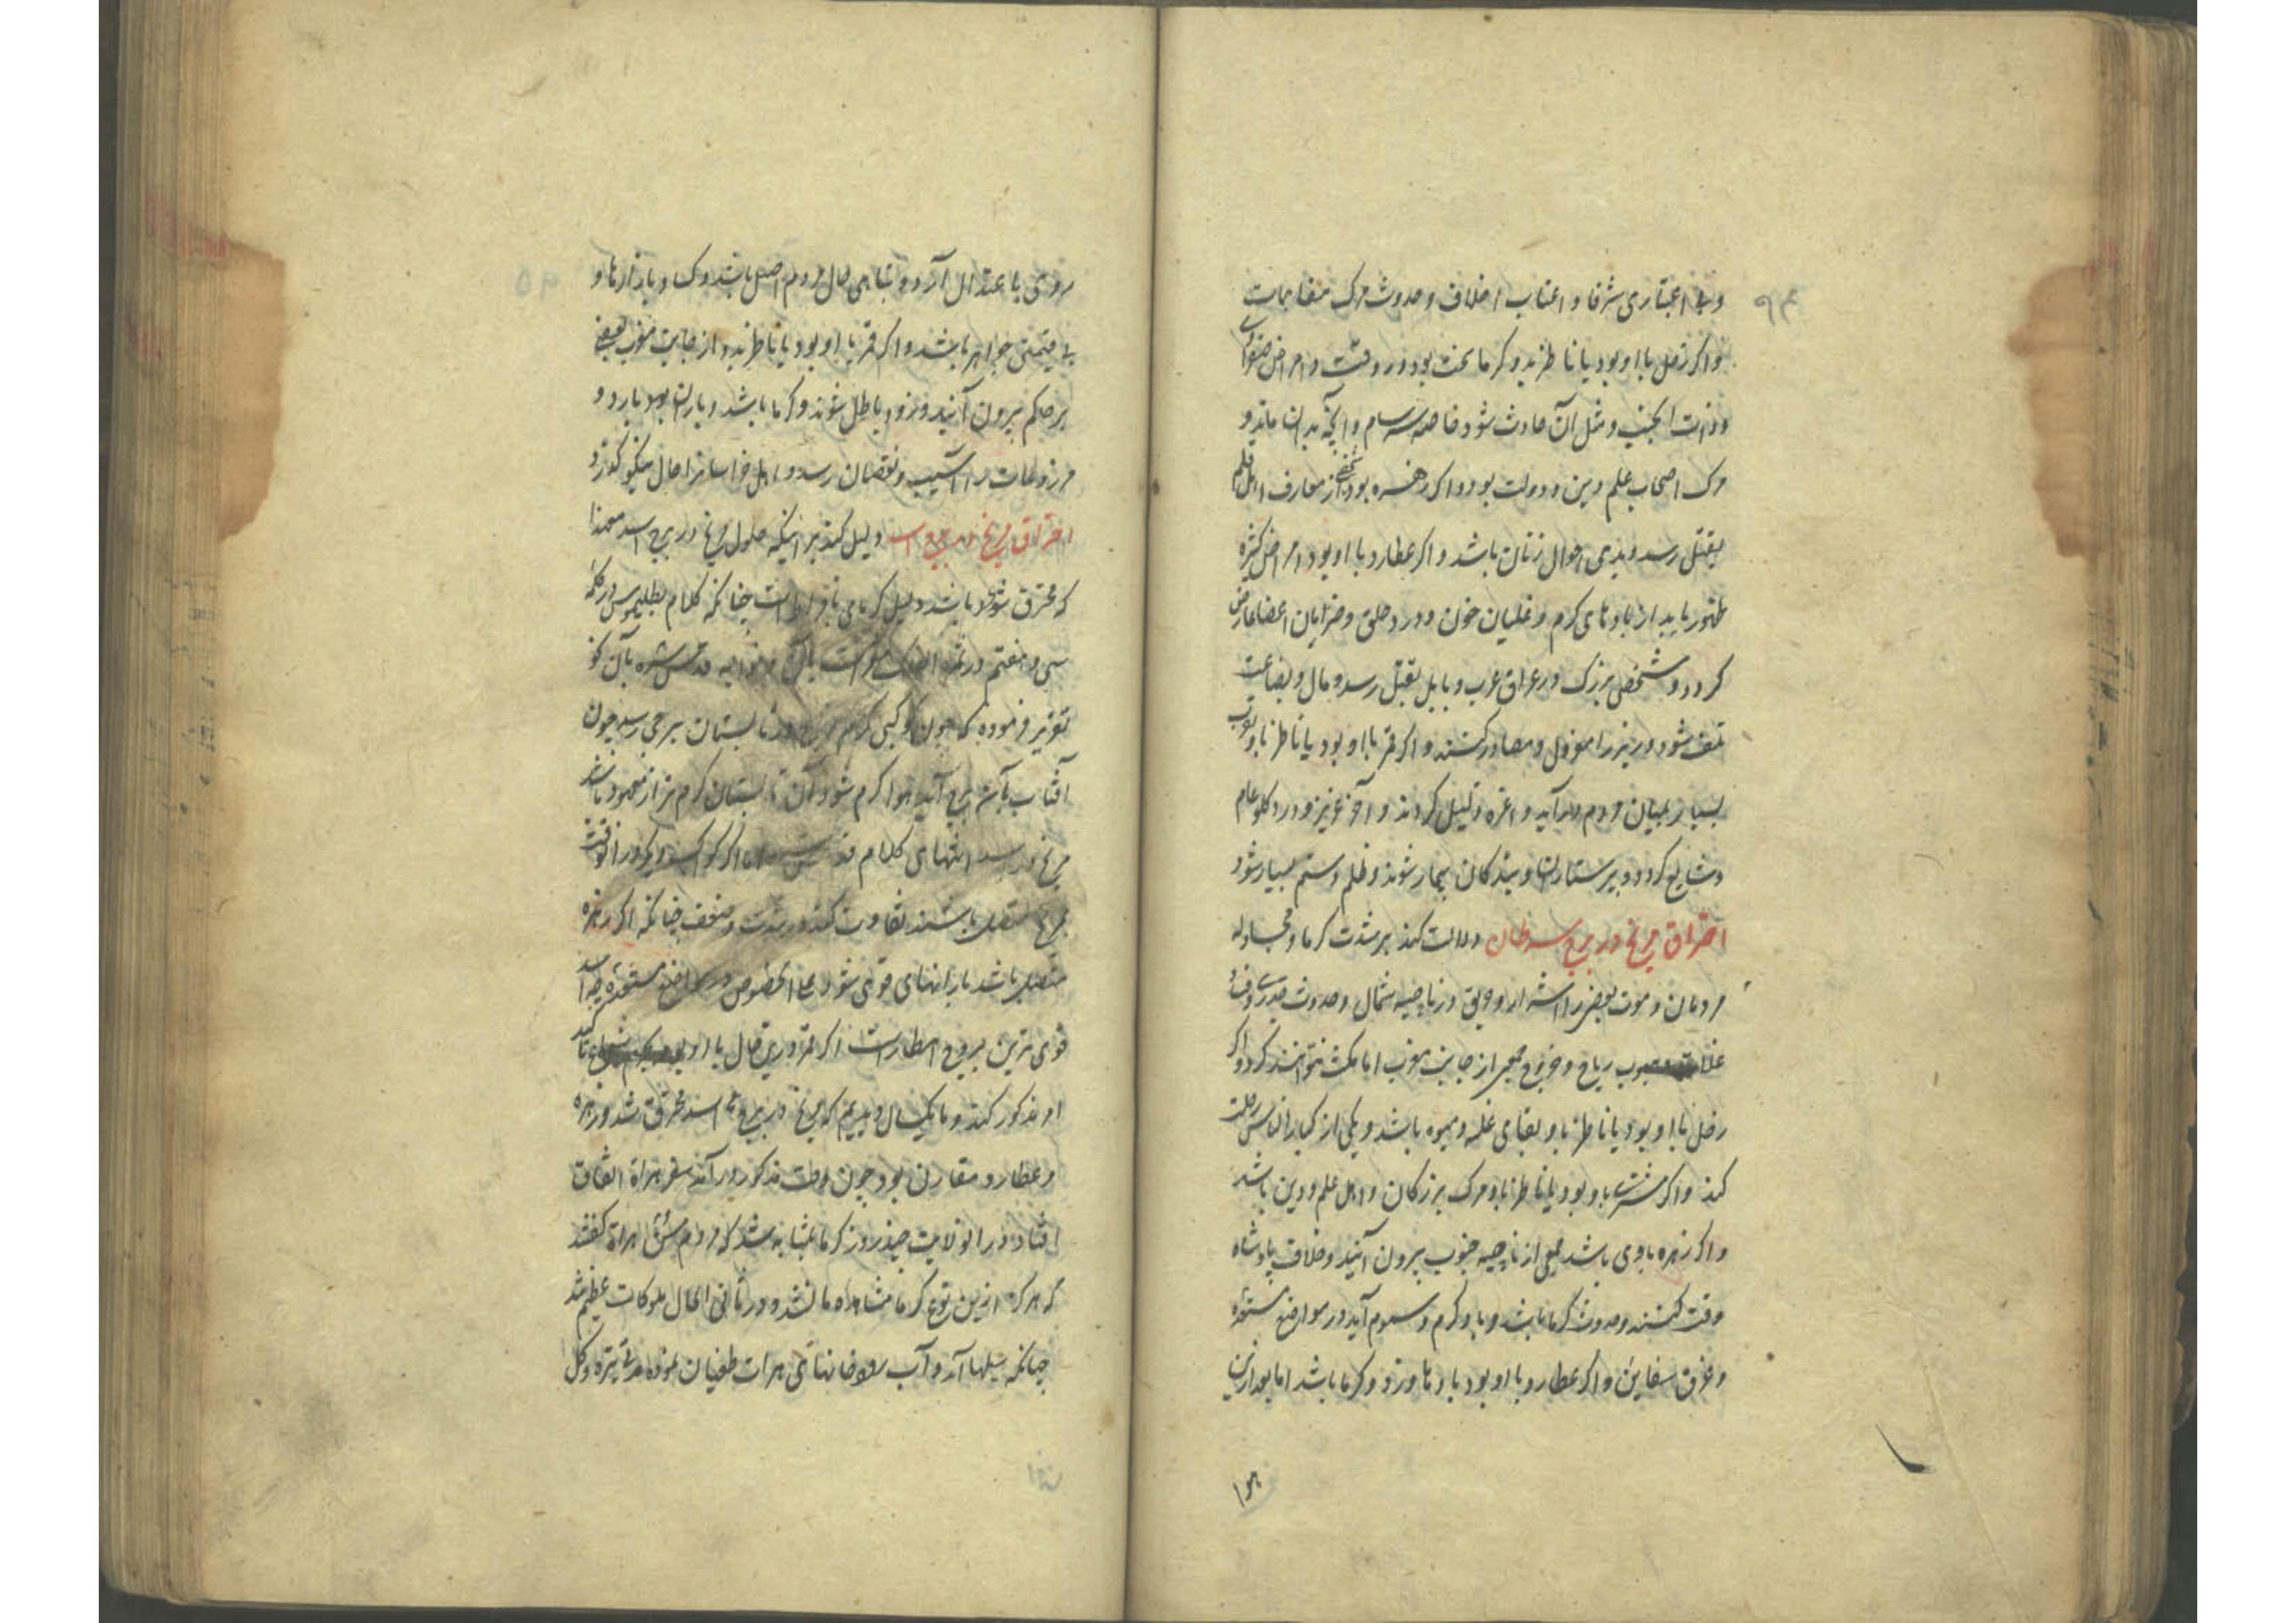 و بی اعتباری شرفا و اعقاب اخلاف و حدوث مرک مفاجات
و اکر زحل با او بود یا ناظر بدو کرما سخت بود در وقتت و امراض صفراوی
و ذات الجنب و مثل آن حادث شود خاصه سرسام و آنچه بدان ماند و
مرک اصحاب علم و دین و دولت بود و اکر زهره بود از معارف اهل قلم
بقتل رسد و بدی احوال زنان باشد و اکر عطارد با او بود امراض کثیره
ظهور یابد از بادهای کرم و غلیان خون و درد حلق و ضربان اعضا عارض
کردد و شخصی بزرک در عراق عرب و بابل بقتل رسد و مال و بضاعت
تلف شود و وزیر را معزول و مصادر کنند و اکر قمر با او بود یا ناظر باو
بسیار بمیان مردم در آید و اعزه ذلیل کردند و آخر عزیز و درد کلو عام
و شایع کردد و پرستاران و بندکان بیمار شوند و ظلم و ستم بسیار شود
احتراق مریخ در برج سرطان دلالت کند بر شدت کرما و مجادله
مردمان و موت بعضی را اشرار و حریق در ناحیه شمال و حدوث جدری و
غلا هبوب ریاح و خروج جمعی از جانب مغرب اما مکث نتوانند کرد و اکر
زحل با او بود یا ناظر باو بقای غله و میوه باشد و یکی از کبار الناس رحلت
کند و اکر مشتری باو بود یا ناظر باو مرک بزرکان و اهل علم و دین باشد
و اکر زهره باوی باشد جمعی از ناحیه جنوب بیرون آیند و خلاف پادشاه
وقت کنند و حدوث کرما باشد و باد کرم و سموم آید در مواضع مستعده
و غرق سفاین و اکر عطارد با او بود بادها وزد و کرما باشد اما بعد ازین
روی با عتدال آرد و تباهی حال مردم اصیل باشد و کساد بازارها و
بی قیمتی جواهر باشد و اکر قمر با او بود یا ناظر بدو از جانب مغرب بعضی
بر حاکم بیرون آیند و زود باطل شوند و کرما باشد و باران بود بارد و
مزروعات را آسیب و نقصان رسد و اهل خراسانرا حال نیکو کذرد
احتراق مریخ در برج اسد دلیل کند بر اینکه حلول مریخ در برج اسد
که محترق شود باشد دلیل کرمای با فراط است چنانکه کلام بطلیموس در کلمه
سی و هفتم در ثمره
تقریر فرموده که چون کوکبی کرم مزاج در تابستان ببرجی رسد چون
آفتاب بآن برج آید هوا کرم شود آن تابستان کرم تر از معهود باشد
مریخ در اسد انتهای کلام اما اکر کوکب دیکر در آنوقت
بمریخ متصل باشند تفاوت کند در شدت و ضعف چنانکه اکر زهره
متصل باشد بارانهای قوی شود علی الخصوص در مواضع مستعده چه اسد
قوی ترین بروج امطار است اکر قمر درین حال با او
او مذکور کند و ما یکسال دیدیم که مریخ در برج اسد محترق شد و زهره
و عطارد مقارن بود چون وقت مذکور در آمد سفر هراة اتفاق
افتاد در آنولایت چند روز کرما بمثابه شد که مردم هراة کفتند
که هرکز ازین نوع کرما مشاهده ما نشد و در ثانی الحال ملوکات عظیم شد
چنانکه سیلها آمد و آب رودخانهای هرات طغیان نموده تیره و کل